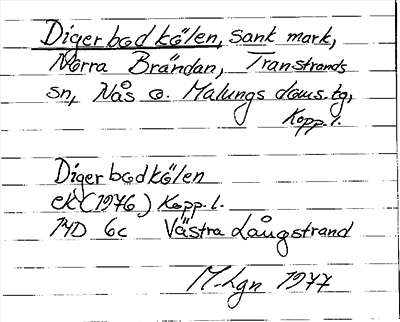 Digerbodkölen, sank mark,
Norra Brändan, Transtrands
sn, Nås o. Malungs doms.tg,
Kopp.l.
Digerbodkölen
ek (1976) Kopp.l.
14D 6c Västra Långstrand
M.Lgn 1977